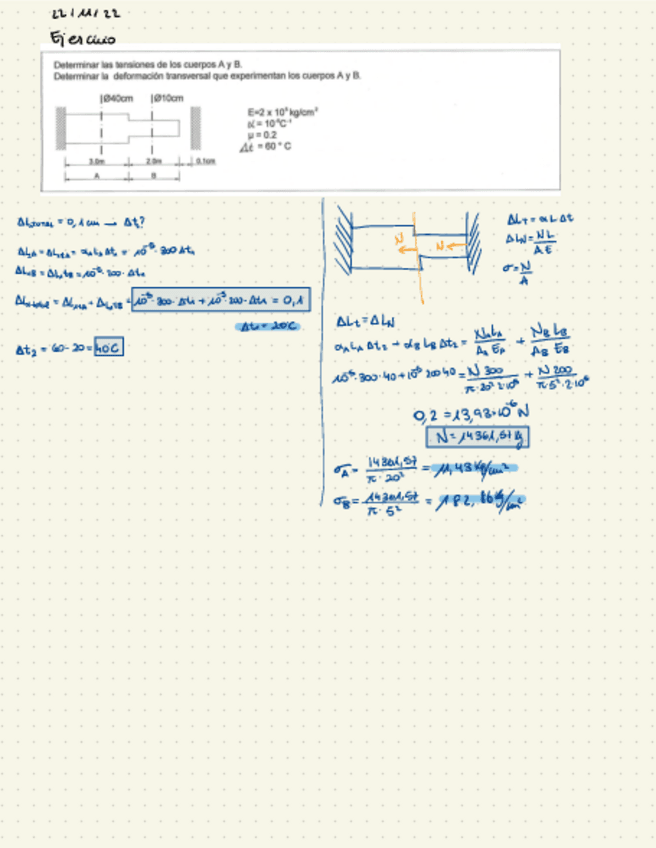 22/11/22
Ejercicio
Determinar las tensiones de los cuerpos A y B.
Determinar la deformación transversal que experimentan los cuerpos A y B.
|Ø40cm |Ø10cm
E=2 x 10⁶ kg/cm²
α = 10⁻⁵ C⁻¹
μ = 0.2
Δt = 60° C
3.0m 2.0m 0.1cm
A B
ΔLTOTAL = 0,1 cm → Δt?
= 10⁻⁵ · 300 Δt₁
= 10⁻⁵ · 200 · Δt₁
10⁻⁵ · 300 · Δt₁ + 10⁻⁵ 200 · Δt₁ = 0,1
Δt₁ = 20°C
Δt₂ = 60 - 20 = 40°C
N N
ΔLT = α L Δt
ΔLN = NL / A E
σ = N / A
ΔLt = ΔLN
αA LA Δt₂ + αB LB Δt₂ = NA LA / AA EA + NB LB / AB EB
10⁻⁵ · 300 · 40 + 10⁻⁵ 200 40 = N 300 / π · 20² · 2 · 10⁶ + N 200 / π · 5² · 2 · 10⁶
0,2 = 13,93 · 10⁻⁶ N
N = 14361,57 kg
σA = 14361,57 / π · 20² = 11,43 kg/cm²
σB = 14361,57 / π · 5² = 182,86 kg/cm²